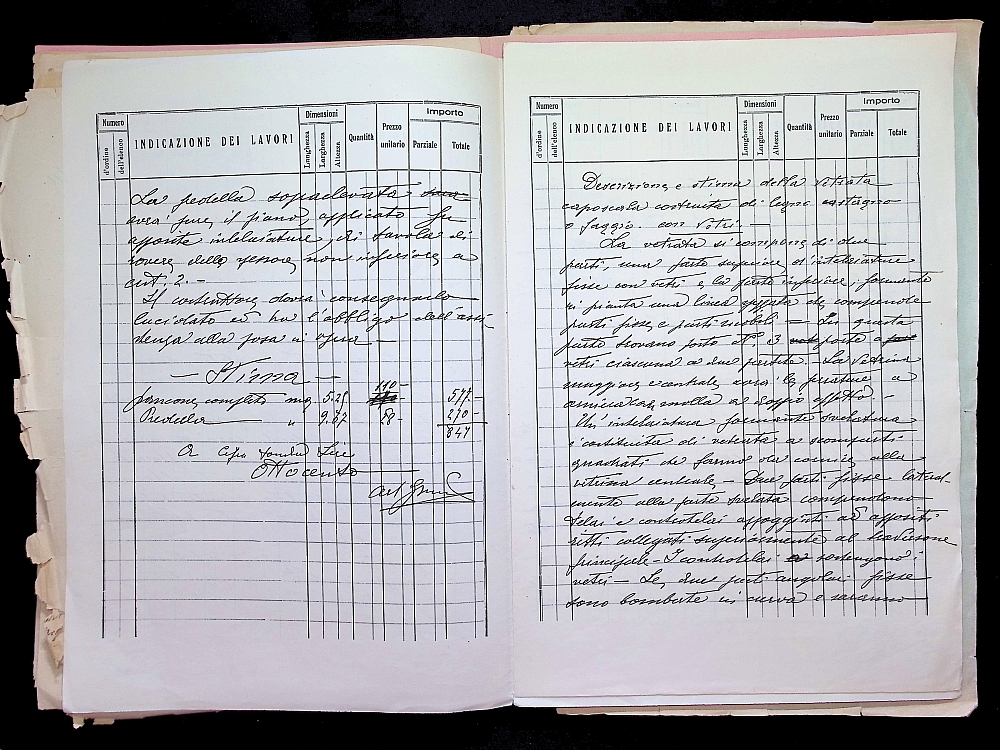 Numero
d'ordine
dell'elenco
INDICAZIONE DEI LAVORI
Dimensioni
Lunghezza
Larghezza
Altezza
Quantità
Prezzo
unitario
Importo
Parziale
Totale
La pedella sopraelevata
avrà pure il piano, applicato su
apposite intelaiature, di tavola di
rovere dello spessore non inferiore a
cent. 2. —
Il costruttore dovrà consegnarlo
lucidato ed ha l'obbligo dell'assi-
stenza alla posa in opera —
— Stima —
110 —
bancone completo mq. 5.25 577 —
Predella " 9.67 28 — 270 —
847
A cifra tonda Lire
Ottocento
Numero
d'ordine
dell'elenco
INDICAZIONE DEI LAVORI
Dimensioni
Lunghezza
Larghezza
Altezza
Quantità
Prezzo
unitario
Importo
Parziale
Totale
Descrizione e stima della vetrata
caposcala costruita di legno castagno
o faggio con vetri.
La vetrata si compone di due
parti, una parte superiore ad intelaiature
fisse con vetri e la parte inferiore formante
in pianta una linea spezzata che comprende
parti fisse e parti mobili — In questa
parte trovano posto N. 3 porte a
vetri ciascuna a due partite. — La vetrina
maggiore centrale avrà le
a molla al doppio effetto. —
Un' intelaiatura formante
è costituita di vetrata a scomparti
quadrati che fanno da cornice alla
vetrina centrale — Due parti fisse lateral-
mente alla parte comprendono
telai e controtelai appoggiati ad appositi
ritti collegati superiormente al traversone
principale — I controtelai sostengono i
vetri — Le due parti angolari fisse
sono bombate in curva e saranno